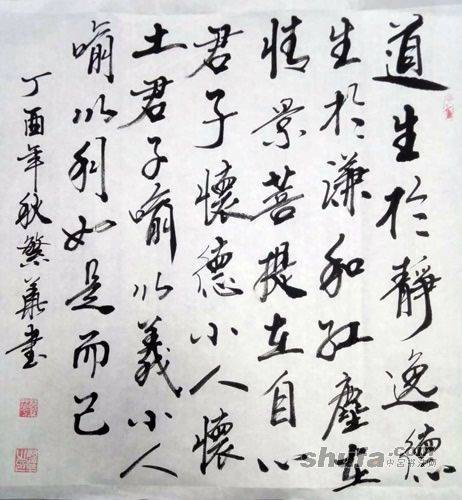 道生於靜逸德
生於谦和紅塵在
情景菩提在自心
君子懷德小人懷
土君子喻以義小人
喻以利如是而已
丁酉年秋繁華書
shufa.com
中国书法网